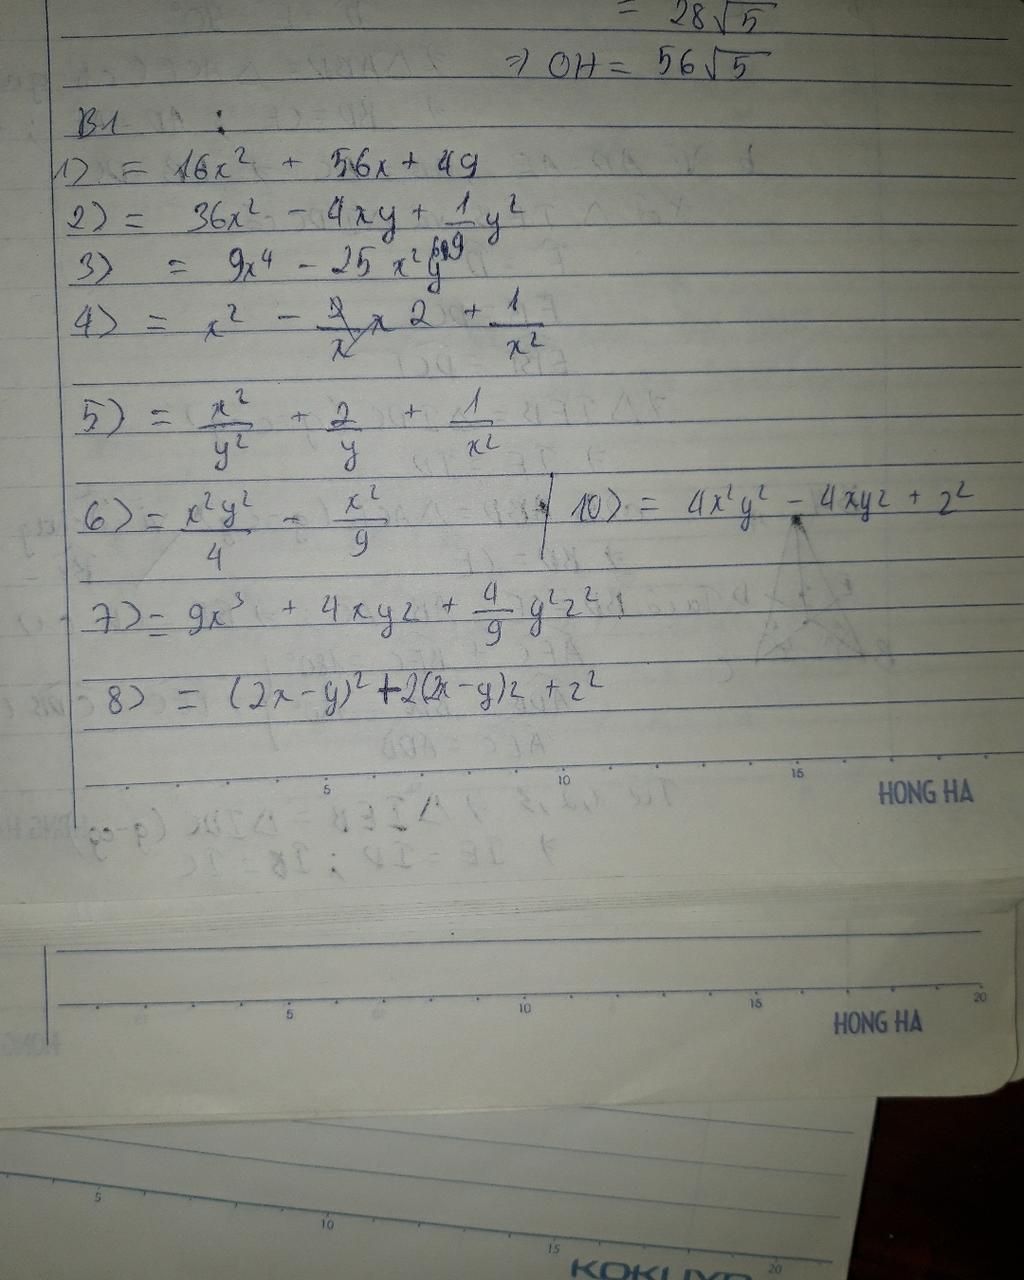 = 28√5
⇒ OH = 56√5
B1 :
1) = 16x² + 56x + 49
2) = 36x² - 4xy + 1/9 y²
3) = 9x⁴ - 25 x²y
4) = x² - 2 + 1/x²
5) = x²/y² + 2/y + 1/x²
6) = x²y²/4 - x²/9
10) = 4x²y² - 4xyz + z²
7) = 9x³ + 4xyz + 4/9 y²z²
8) = (2x-y)² + 2(2x-y)z + z²
5 10 15
HONG HA
5 10 15 20
HONG HA
5 10 15 20
KOKUYO